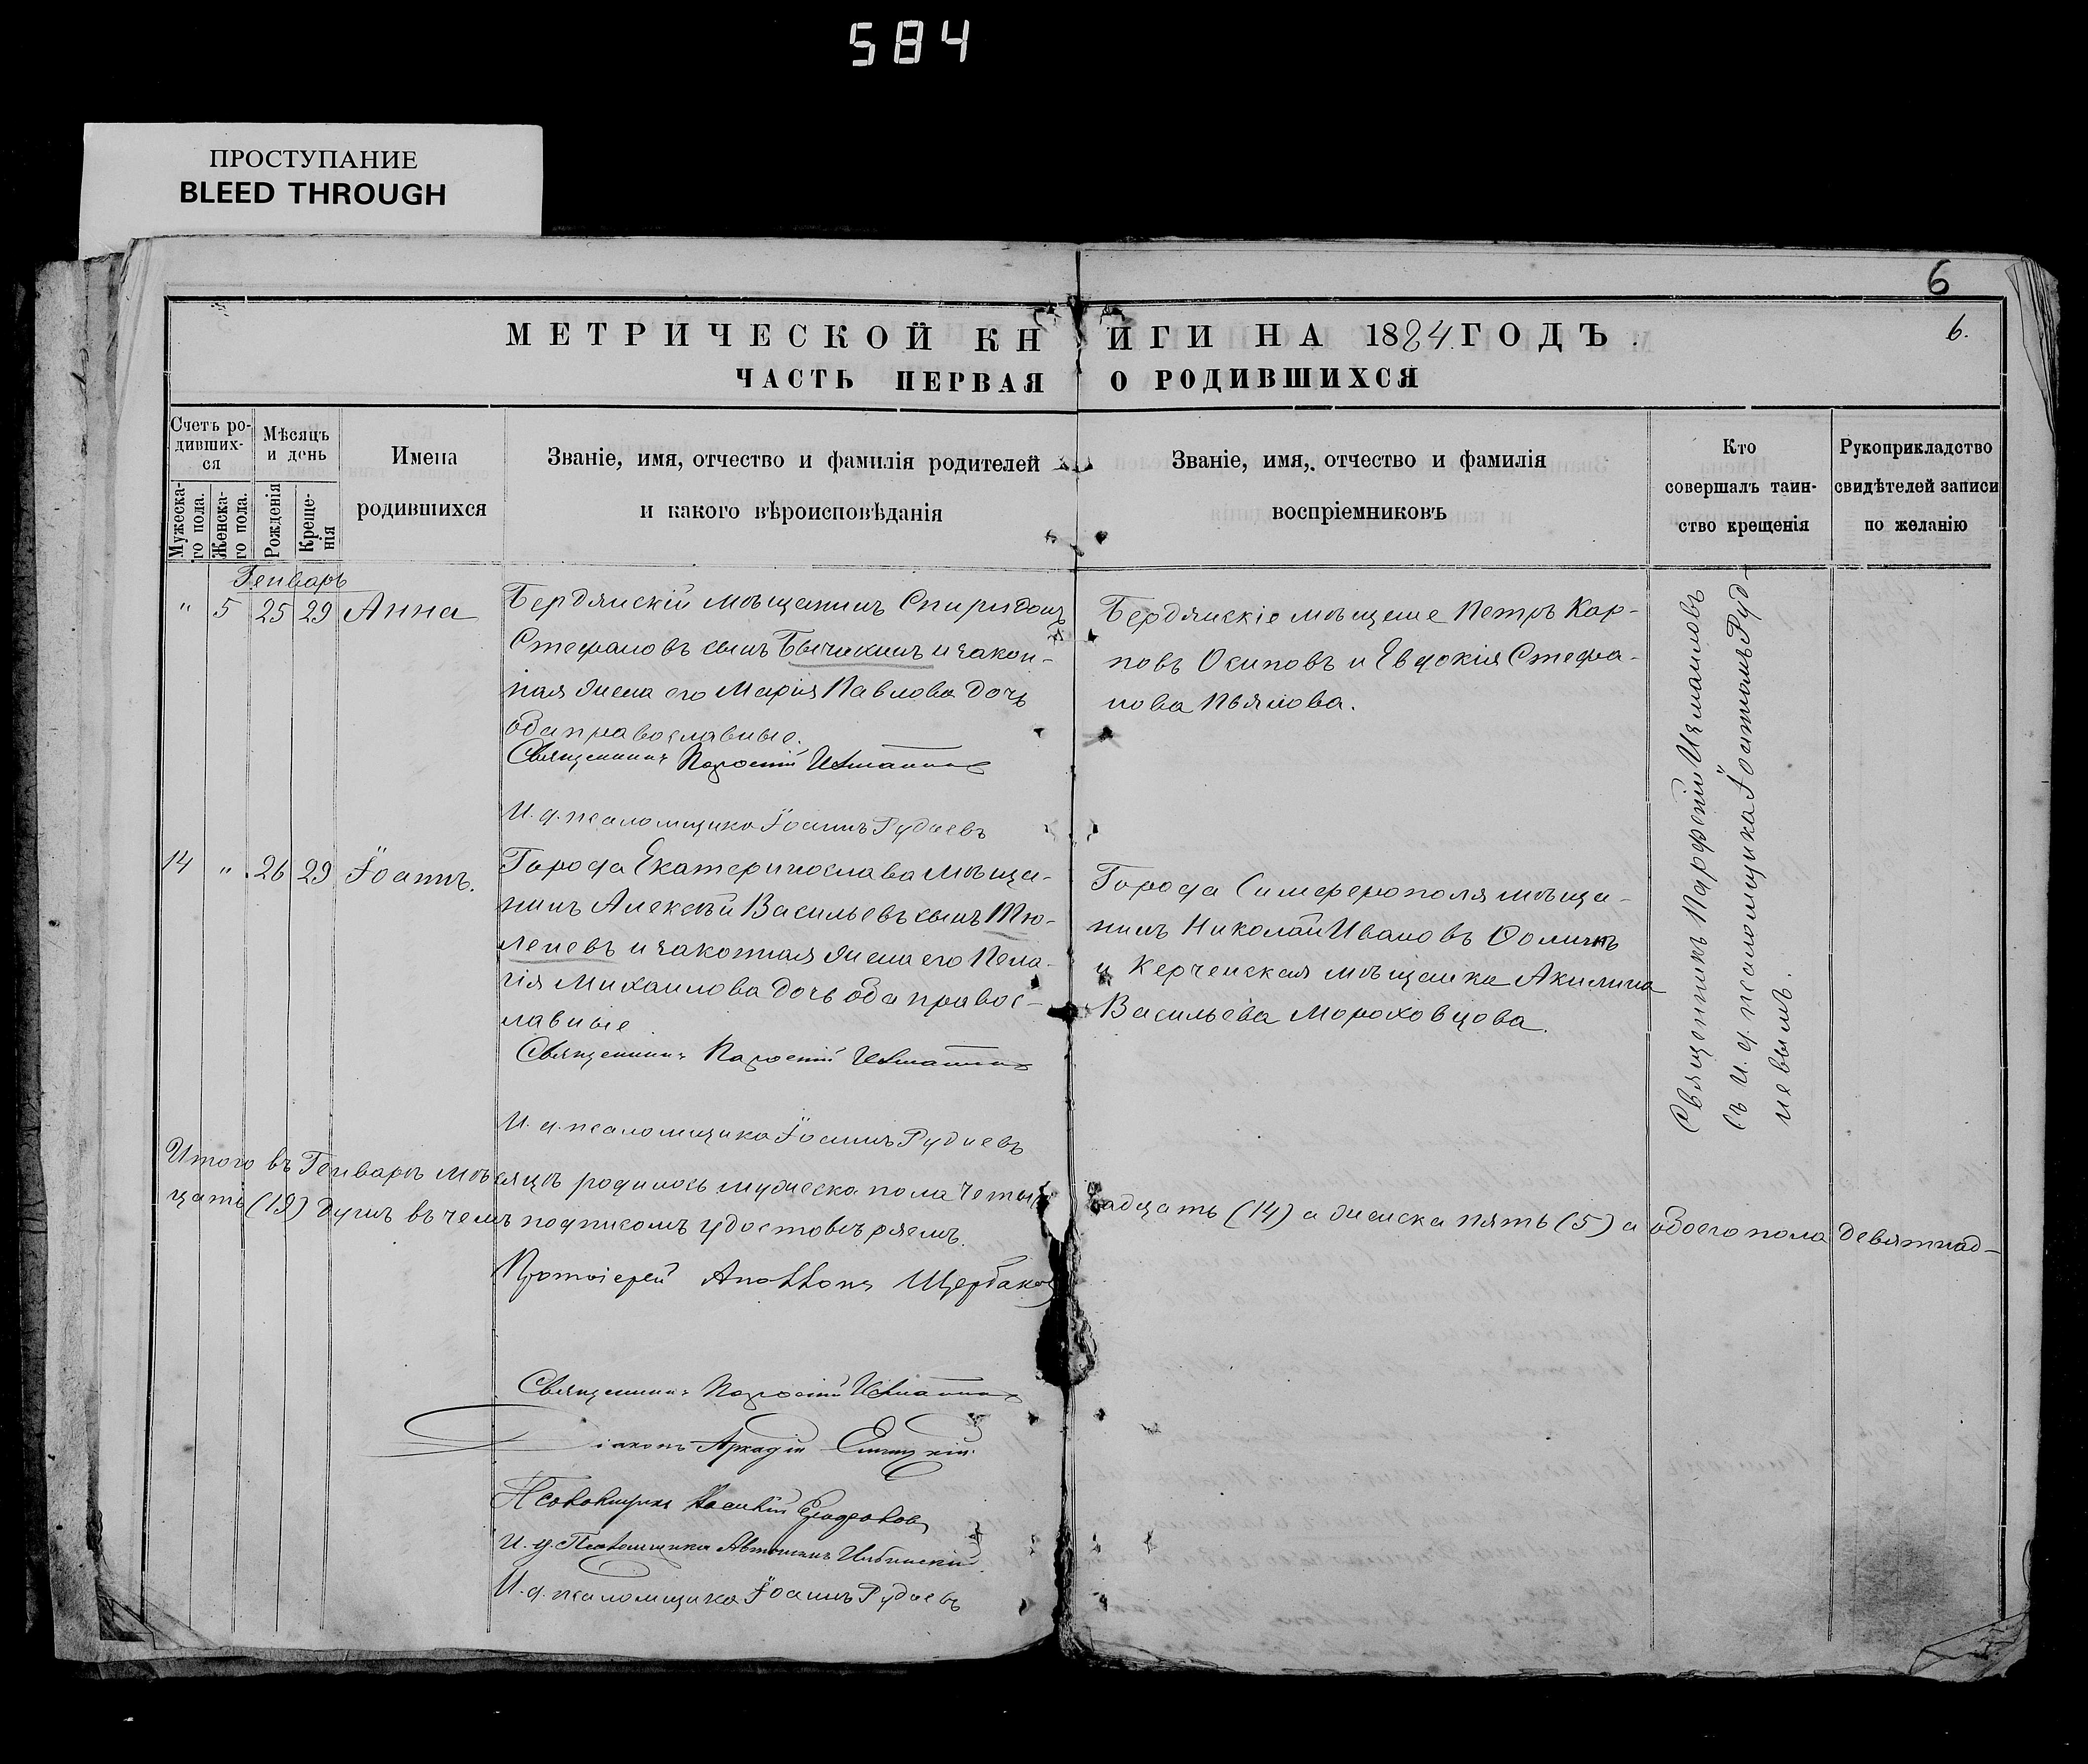 584
ПРОСТУПАНИЕ
BLEED THROUGH
6
МЕТРИЧЕСКОЙ КНИГИ НА 1884 ГОДЪ.
6.
ЧАСТЬ ПЕРВАЯ О РОДИВШИХСЯ
Счетъ ро-
дивших-
ся
Мужеска-
го пола.
Женска-
го пола.
Мѣсяцъ
и день
Рожденія
Креще-
нія
Имена
родившихся
Званіе, имя, отчество и фамилія родителей
и какого вѣроисповѣданія
Званіе, имя, отчество и фамилія
воспріемниковъ
Кто
совершалъ таин-
ство крещенія
Рукоприкладство
свидѣтелей записи
по желанію
Генварь
" 5 25 29 Анна
Бердянскій мѣщанинъ Спиридонъ
Стефановъ сынъ Бычихинъ и закон-
ная жена его Марія Павлова дочь
оба православные.
Священникъ Парѳеній
И. д. псаломщика Іоаннъ Рудневъ
Бердянскіе мѣщане Петръ Кар-
повъ Осиповъ и Евдокія Стефа-
нова Пьянова.
14 " 26 29 Іоаннъ.
Города Екатеринослава мѣща-
нинъ Алексѣй Васильевъ сынъ Тю-
леневъ и законная жена его Пела-
гія Михаилова дочь оба правос-
лавные
Священникъ Парѳеній
И. д. псаломщика Іоаннъ Рудневъ
Города Симферополя мѣща-
нинъ Николай Ивановъ Ѳоминъ
и Керченская мѣщанка Акилина
Васильева Мороховцова.
Священникъ Парѳеній Измаиловъ
съ И. д. псаломщика Іоанномъ Руд-
невымъ.
Итого въ Генварѣ мѣсяцѣ родилось мужеска пола четырнадцать (14) а женска пять (5) а обоего пола девятнад-
цать (19) душъ въ чемъ подписомъ удостовѣряемъ.
Протоіерей Аполлонъ Щербаковъ
Священникъ Парѳеній
Діаконъ Аркадій
Псаломщикъ Василій
И. д. Псаломщика
И. д. псаломщика Іоаннъ Рудневъ